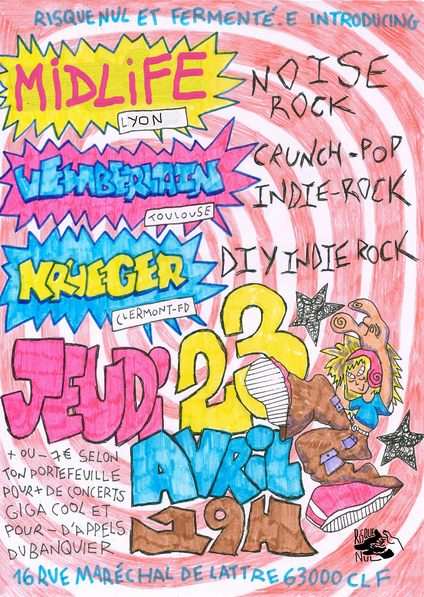 RISQUE NUL ET FERMENTÉ·E INTRODUCING
MIDLIFE
LYON
NOISE
ROCK
WEMBERLAIN
TOULOUSE
CRUNCH-POP
INDIE-ROCK
KRUEGER
CLERMONT-FD
DIY INDIE ROCK
JEUDI 23
AVRIL
19H
+ OU - 7€ SELON
TON PORTEFEUILLE
POUR + DE CONCERTS
GIGA COOL ET
POUR - D'APPELS
DU BANQUIER
RISQUE
NUL
16 RUE MARÉCHAL DE LATTRE 63000 CLF